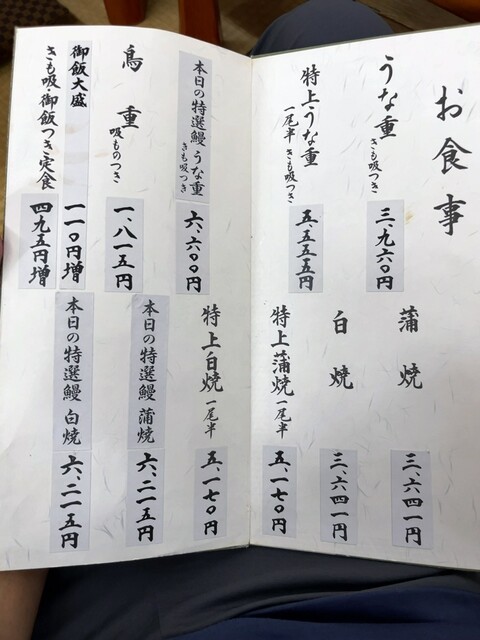 お食事
うな重 きも吸つき
三、九六〇円
特上うな重
一尾半 きも吸つき
五、五五五円
蒲焼
三、六四一円
白焼
三、六四一円
特上蒲焼 一尾半
五、一七〇円
本日の特選鰻 うな重
きも吸つき
六、六〇〇円
鳥重
吸ものつき
一、八一五円
御飯大盛
一一〇円増
きも吸・御飯つき定食
四九五円増
特上白焼 一尾半
五、一七〇円
本日の特選鰻 蒲焼
六、二一五円
本日の特選鰻 白焼
六、二一五円